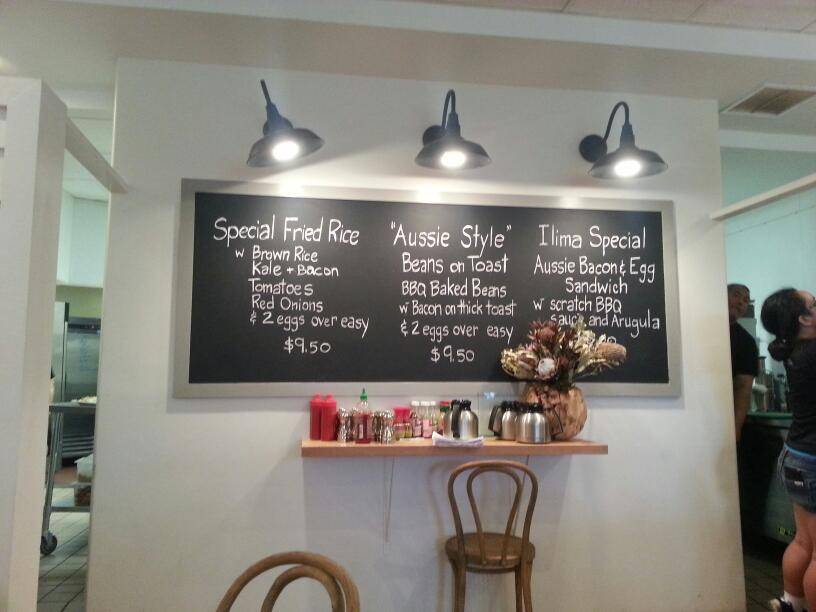 Special Fried Rice
w Brown Rice
Kale + Bacon
Tomatoes
Red Onions
& 2 eggs over easy
$9.50
"Aussie Style"
Beans on Toast
BBQ Baked Beans
w Bacon on thick toast
& 2 eggs over easy
$9.50
Ilima Special
Aussie Bacon & Egg
Sandwich
w scratch BBQ
sauce and Arugula